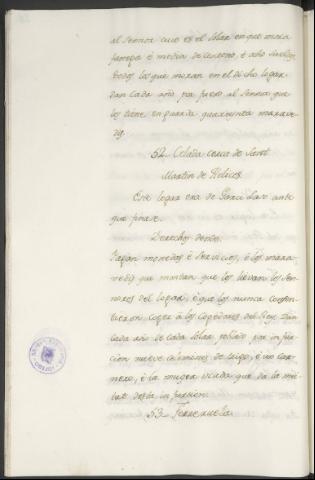 al Sennor cuio es el solar en que mora
fanega é media de centeno, é año
todos los que moran en el dicho logar
dan cada año por fuero al Sennor que
los tiene en guarda quarenta marave
dis.
52. Celada cerca de Sant
Martin de Helices.
Este logar era de Garci Laso ante
que finase.
Derechos dende.
Pagan monedas é servicios, é los mara
vedis que montan que los llevan los Sen
nores del logar, é que los nunca consin
tieron coger á los cogedores del Rey. Dan
cada año de cada solar poblado por in fur
cion nueve celemines de trigo, é un car
nero, é la muger viuda que dá la mi
tat desta in furcion.
53. Terrenuela